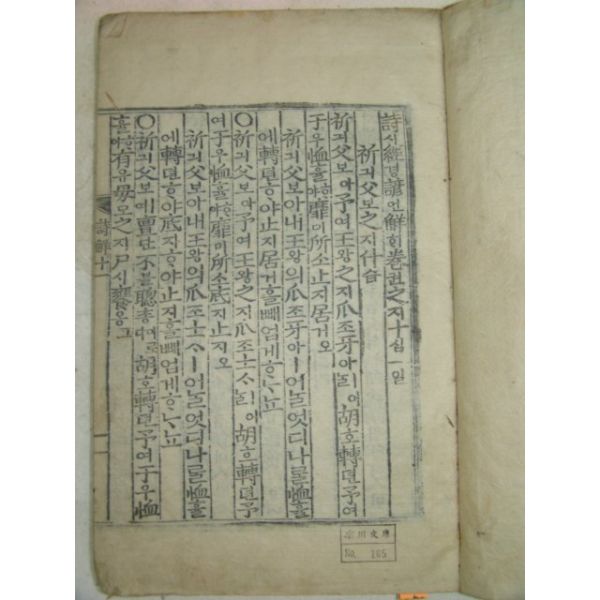 詩시經경諺언解ᄒᆡ卷권之지十십一일
祈긔父보之지什습
祈긔父보아予여王왕之지爪조牙아ㅣ니胡호轉뎐予여
于우恤휼ᄒᆞ야靡미所소止지居거오
祈긔父보아내王왕의爪조牙아ㅣ어ᄂᆞᆯ엇디나ᄅᆞᆯ恤휼
에轉뎐ᄒᆞ야止지居거ᄒᆞᆯᄢᅢ업게ᄒᆞᄂᆞ뇨
○祈긔父보아予여王왕之지爪조士ᄉᆞㅣ니胡호轉뎐予
여于우恤휼ᄒᆞ야靡미所소底지止지오
祈긔父보아내王왕의爪조士ᄉᆞㅣ어ᄂᆞᆯ엇디나ᄅᆞᆯ恤휼
에轉뎐ᄒᆞ야底지ᄒᆞ야止지ᄒᆞᆯᄢᅢ업게ᄒᆞᄂᆞ뇨
○祈긔父보ㅣ亶단不블聰총이로다胡호轉뎐予여于우恤
휼ᄒᆞ야有유母모之지尸시饔옹그
詩解十
一
No. 165